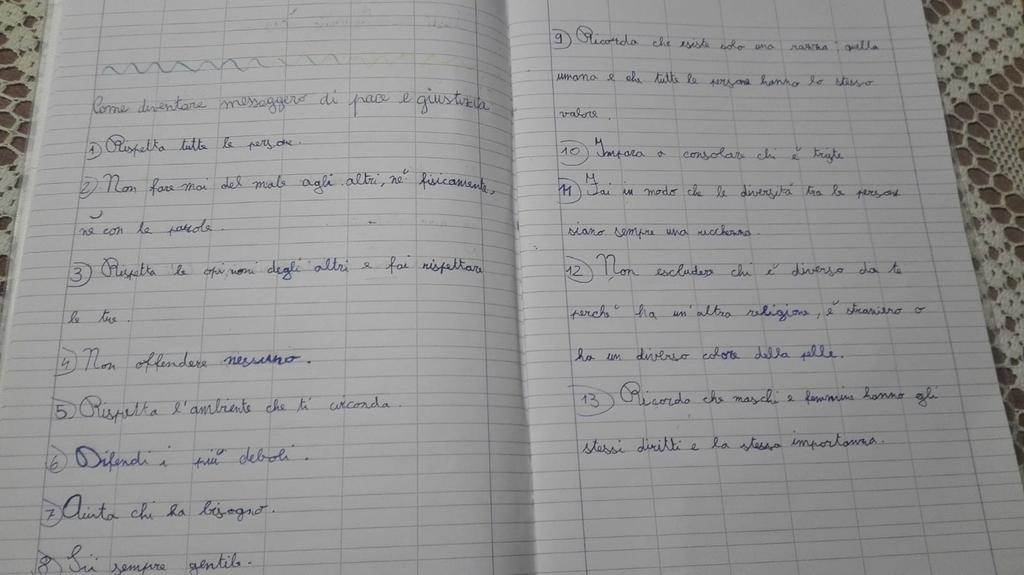 Come diventare messeggero di pace e giustizia
1) Rispetta tutte le persone.
2) Non fare mai del male agli altri, nè fisicamente,
nè con le parole.
3) Rispetta le opinioni degli altri e fai rispettare
le tue.
4) Non offendere nessuno.
5) Rispetta l'ambiente che ti circonda.
6) Difendi i più deboli.
7) Aiuta chi ha bisogno.
8) Sii sempre gentile.
9) Ricorda che esiste solo una razza, quella
umana e che tutte le persone hanno lo stesso
valore.
10) Impara a consolare chi è triste
11) Fai in modo che le diversità tra le persone
siano sempre una ricchezza.
12) Non escludere chi è diverso da te
perchè ha un'altra religione, è straniero o
ha un diverso colore della pelle.
13) Ricorda che maschi e femmine hanno gli
stessi diritti e la stessa importanza.